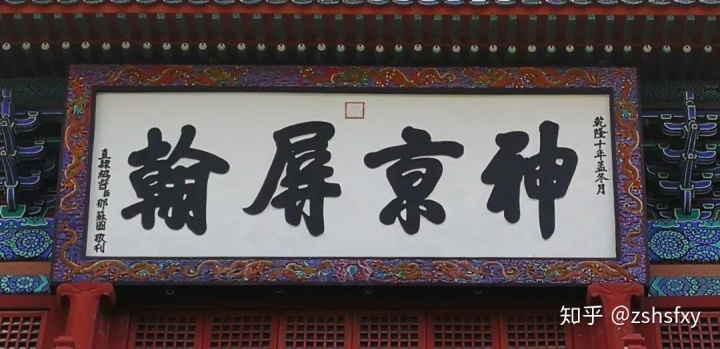 乾隆十年孟冬月
神京屏翰
直隸總督臣那蘇圖敬刊
知乎 @zshsfxy